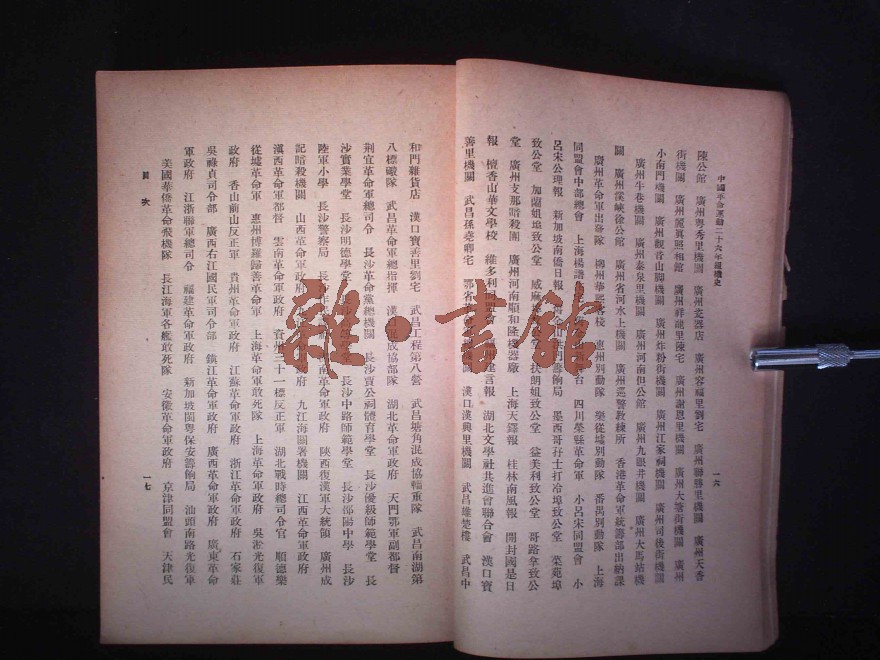 中國革命運動二十六年組織史
一六
陳公館 廣州粵秀里機關 廣州瓷器店 廣州容福里劉宅 廣州聯勝里機關 廣州天香
街機關 廣州麗真照相館 廣州祥龍里陳宅 廣州謝恩里機關 廣州大塘街機關 廣州
小南門機關 廣州觀音山關機關 廣州炸粉街機關 廣州江家祠機關 廣州司後街機關
廣州牛巷機關 廣州秦泉里機關 廣州河南但公館 廣州九眼井機關 廣州大馬站機
關 廣州徐公館 廣州省河水上機關 廣州巡警教練所 香港革命軍統籌部出納課
廣州革命軍出發隊 客棧 惠州別動隊 樂從墟別動隊 番禺別動隊 上海
同盟會中部總會 上海楊譜 台 四川榮縣革命軍 小呂宋同盟會 小
呂宋公理報 新加坡南僑日報 籌餉局 墨西哥孖士打冶埠致公堂 菜苑埠
致公堂 加蘭姐埠致公堂 威麻 扶朗姐致公堂 益美利致公堂 哥路拿致公
堂 廣州支那暗殺團 廣州河南順和隆機器廠 上海天鐸報 桂林南風報 開封國是日
報 檀香山華文學校 維多利同盟會 建言報 湖北文學社共進會聯合會 漢口寶
善里機關 武昌孫堯卿宅 鄂省 漢口漢興里機關 武昌雄楚樓 武昌中
和門雜貨店 漢口寶善里劉宅 武昌工程第八營 武昌塘角混成協輜重隊 武昌南湖第
八標礮隊 武昌革命軍總指揮 漢口 成協部隊 湖北革命軍政府 天門鄂軍副都督
荆宜革命軍總司令 長沙革命黨總機關 長沙賈公祠體育學堂 長沙優級師範學堂 長
沙實業學堂 長沙明德學堂 長沙中路師範學堂 長沙邵陽中學 長沙
陸軍小學 長沙警察局 長沙 南革命軍政府 陝西復漢軍大統領 廣州成
記暗殺機關 山西革命軍政府 九江海關署機關 江西革命軍政府
滇西革命軍都督 雲南革命軍政府 貴州 三十一標反正軍 湖北戰時總司令官 順德樂
從墟革命軍 惠州博羅歸善革命軍 上海革命軍敢死隊 上海革命軍政府 吳淞光復軍
政府 香山前山反正軍 貴州革命軍政府 江蘇革命軍政府 浙江革命軍政府 石家莊
吳祿貞司令部 廣西右江國民軍司令部 鎮江革命軍政府 廣西革命軍政府 廣東革命
軍政府 江浙聯軍總司令 福建革命軍政府 新加坡閩粵保安籌餉局 汕頭南路光復軍
美國華僑革命飛機隊 長江海軍各艦敢死隊 安徽革命軍政府 京津同盟會 天津民
目次
一七
雜·書館